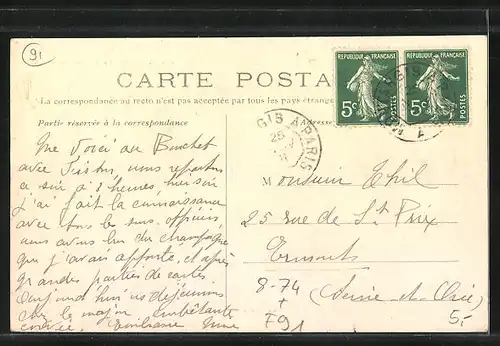 91
CARTE POSTA
RÉPUBLIQUE FRANÇAISE
5c POSTES
RÉPUBLIQUE FRANÇAISE
5c POSTES
La correspondance au recto n'est pas acceptée par tous les pays étrange
Partie réservée à la correspondance
Adresse
GIS A PARIS
Me Voici au Buchet
avec nous repartons
ce soir à 8 heures, hier soir
j'ai fait la connaissance
avec tous les sous officiers
nous avons bu du champagne
que j'avais apporté, et après
grandes parties de cartes
Aujourd'hui nous déjeunons
chez le major
Monsieur Thil
25 rue de St Prix
Ermont
(Seine-et-Oise)
8-74
+
F91
5,-